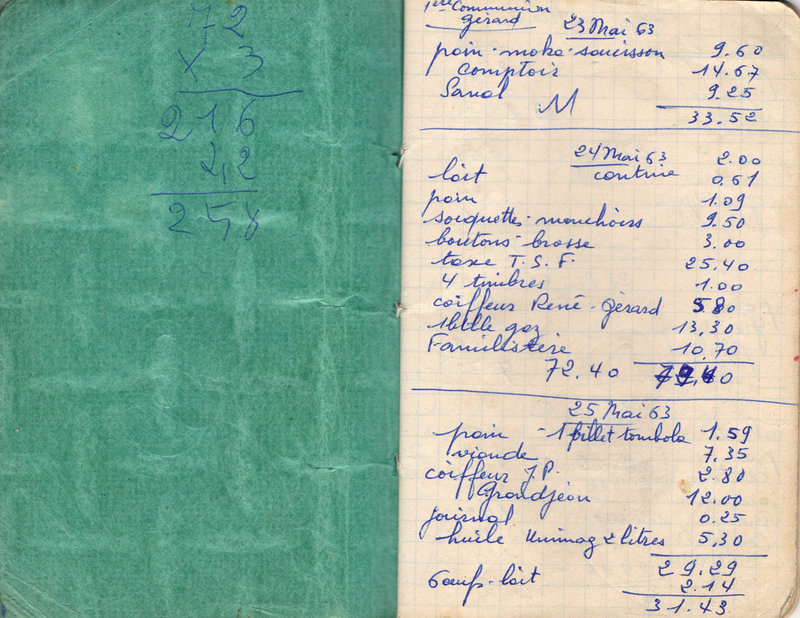 72
x 3
216
42
258
1ère Communion
gérard
23 Mai 63
pain - moka - saucisson 9.60
Comptoir 14.67
Sanal 9.25
M
33.52
24 Mai 63 2.00
lait contrie 0.61
pain 1.09
soquettes - mouchoirs 9.50
boutons - brosse 3.00
taxe T.S.F. 25.40
4 timbres 1.00
coiffeur René - gérard 5.80
1 bille gaz 13,30
Familistère 10,70
72.40
25 Mai 63
pain - 1 billet tombola 1.59
viande 7.35
coiffeur J.P. 2.80
Grandjean 12.00
journal 0.25
huile Unimag 2 litres 5,30
29.29
6 œufs - lait 2.14
31.43